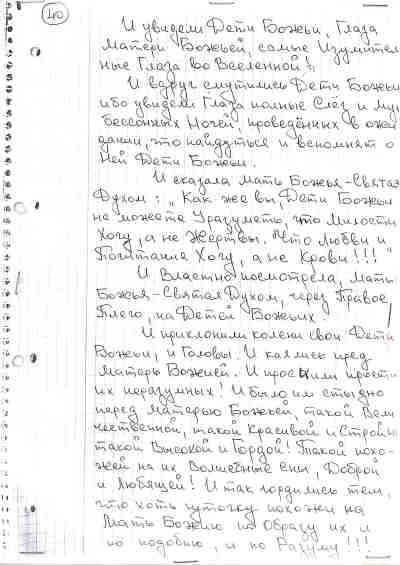 40
И увидели Дети Божьи, Глаза
Матери Божьей, самые Изумитель
ные Глаза во Вселенной!
И вдруг смутились Дети Божьи
ибо увидели Глаза полные Слёз и Мук
бессонных Ночей, проведённых в ожи
дании, что найдуться и вспомнят о
Ней Дети Божьи.
И сказала Мать Божья-Святая
Духом: „Как же вы, Дети Божьи
не можете Уразуметь, что Милости
Хочу, а не Жертвы. Что Любви и
Почитания Хочу, а не Крови!!!"
И Властно посмотрела, Мать
Божья-Святая Духом, через Правое
Плечо, на Детей Божьих.
И приклонили колени свои Дети
Божьи, и Головы. И каялись пред
Матерью Божией. И просили прости
их неразумных! И было им стыдно
перед Матерью Божьей, такой Вели
чественной, такой Красивой и Стройно
такой Высокой и Гордой! Такой похо-
жей на их Волшебные сны, Доброй
и Любящей! И так гордились тем,
что хоть чуточку похожи на
Мать Божию по Образу их и
по подобию, и по Разуму!!!